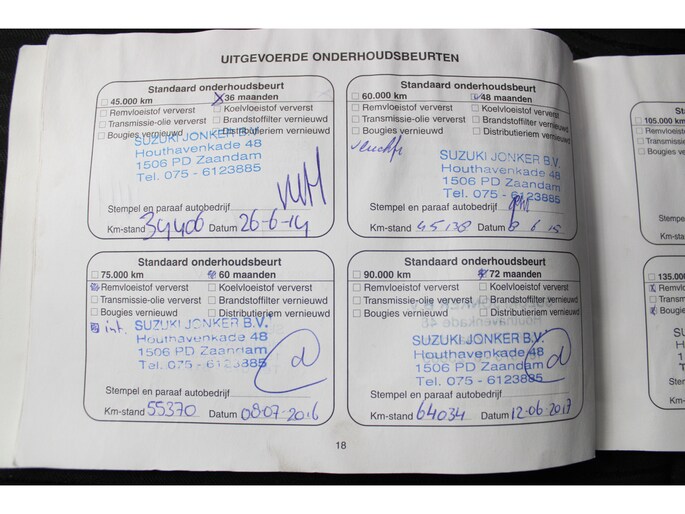 UITGEVOERDE ONDERHOUDSBEURTEN
Standaard onderhoudsbeurt
45.000 km 36 maanden
Remvloeistof ververst Koelvloeistof ververst
Transmissie-olie ververst Brandstoffilter vernieuwd
Bougies vernieuwd Distributieriem vernieuwd
SUZUKI JONKER B.V.
Houthavenkade 48
1506 PD Zaandam
Tel. 075 - 6123885
Stempel en paraaf autobedrijf
Km-stand 39406 Datum 26-6-14
Standaard onderhoudsbeurt
60.000 km 48 maanden
Remvloeistof ververst Koelvloeistof ververst
Transmissie-olie ververst Brandstoffilter vernieuwd
Bougies vernieuwd Distributieriem vernieuwd
SUZUKI JONKER B.V.
Houthavenkade 48
1506 PD Zaandam
Tel. 075 - 6123885
Stempel en paraaf autobedrijf
Km-stand 45138 Datum 8 6 15
Standaard onderhoudsbeurt
75.000 km 60 maanden
Remvloeistof ververst Koelvloeistof ververst
Transmissie-olie ververst Brandstoffilter vernieuwd
Bougies vernieuwd Distributieriem vernieuwd
int. SUZUKI JONKER B.V.
Houthavenkade 48
1506 PD Zaandam
Tel. 075 - 6123885
d
Stempel en paraaf autobedrijf
Km-stand 55370 Datum 08-07-2016
Standaard onderhoudsbeurt
90.000 km 72 maanden
Remvloeistof ververst Koelvloeistof ververst
Transmissie-olie ververst Brandstoffilter vernieuwd
Bougies vernieuwd Distributieriem vernieuwd
SUZUKI JONKER B.V.
Houthavenkade 48
1506 PD Zaandam
Tel. 075 - 6123885
d
Stempel en paraaf autobedrijf
Km-stand 64034 Datum 12-06-2017
18
105.000 km
Remvloeistof
Transmissie
Bougies ver
Stempe
Km-sta
135.000
Remvloe
Transm
Bougies
Stem
Km-